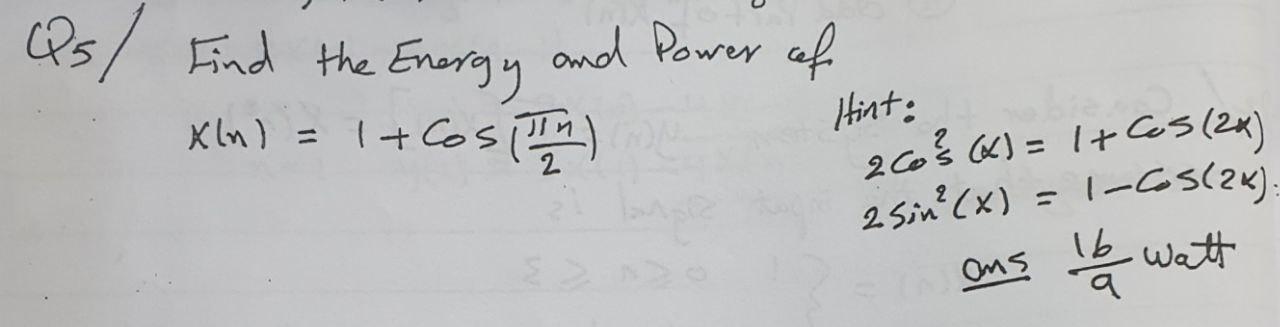 Q5/ Find the Energy and Power of
x(n) = 1 + Cos(πn/2)
Hint:
2Cos²(x) = 1 + Cos(2x)
2Sin²(x) = 1 - Cos(2x).
ans 16/9 watt